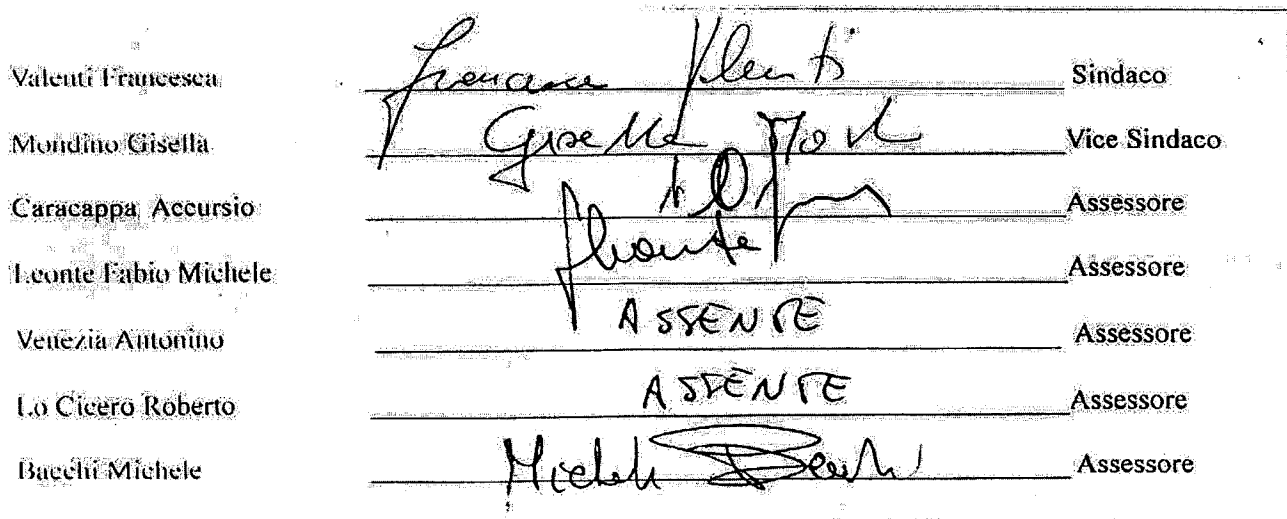 Valenti Francesca Francesca Valenti Sindaco
Mondino Gisella Gisella Mon Vice Sindaco
Caracappa Accursio Assessore
Leonte Fabio Michele Assessore
Venezia Antonino ASSENTE Assessore
Lo Cicero Roberto ASSENTE Assessore
Bacchi Michele Michele Bacchi Assessore